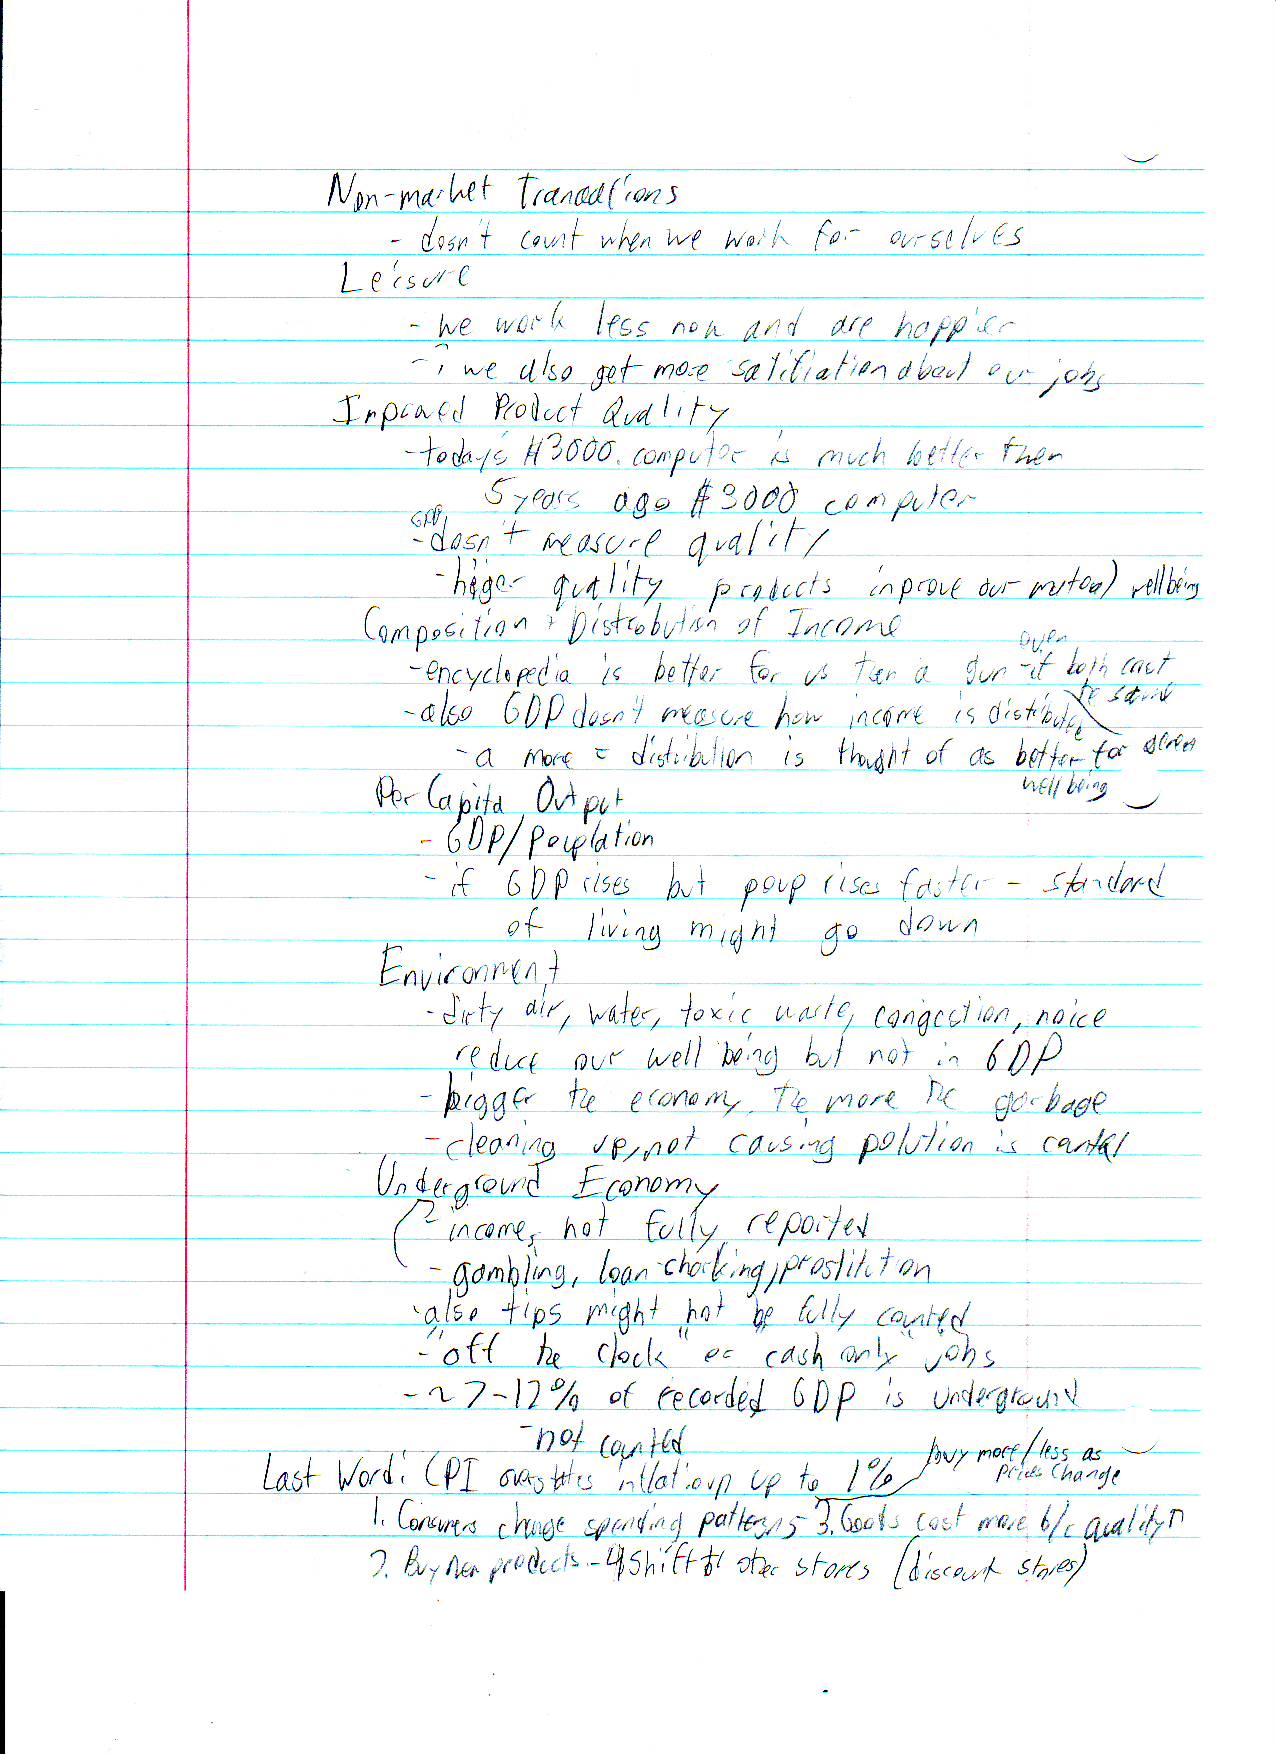 Non-market Tranactions
- dosn't count when we work for ourselves
Leisure
- we work less now and are happier
- we also get more satifiation about our jobs
Improved Product Quality
- today's $3000 computer is much better then
5 years ago $3000 computer
GDP
- dosn't measure quality
- higer quality products improve our mutual wellbeing
Composition + Distrobution of Income
- encyclopedia is better for us then a gun - if both cost
even
the same
- also GDP dosn't measure how income is distributed
- a more = distribution is thought of as better for
well being
Per Capita Output
- GDP/Pouplation
- if GDP rises but poup rises faster - standard
of living might go down
Environment
- dirty air, water, toxic waste, congestion, noice
reduce our well being but not in GDP
- bigger the economy, the more the garbage
- cleaning up, not causing polution is counted
Underground Economy
- income, not fully reported
- gambling, loan-sharking, prostitution
- also tips might not be fully counted
- "off the clock" or "cash only" jobs
- ~7-12% of recorded GDP is underground
- not counted
Last Word: CPI overstates inflation up to 1%
buy more/less as
prices change
1. Consumers change spending patterns 3. Goods cost more b/c quality ↑
2. Buy new products - 4 Shift to other stores (discount stores)